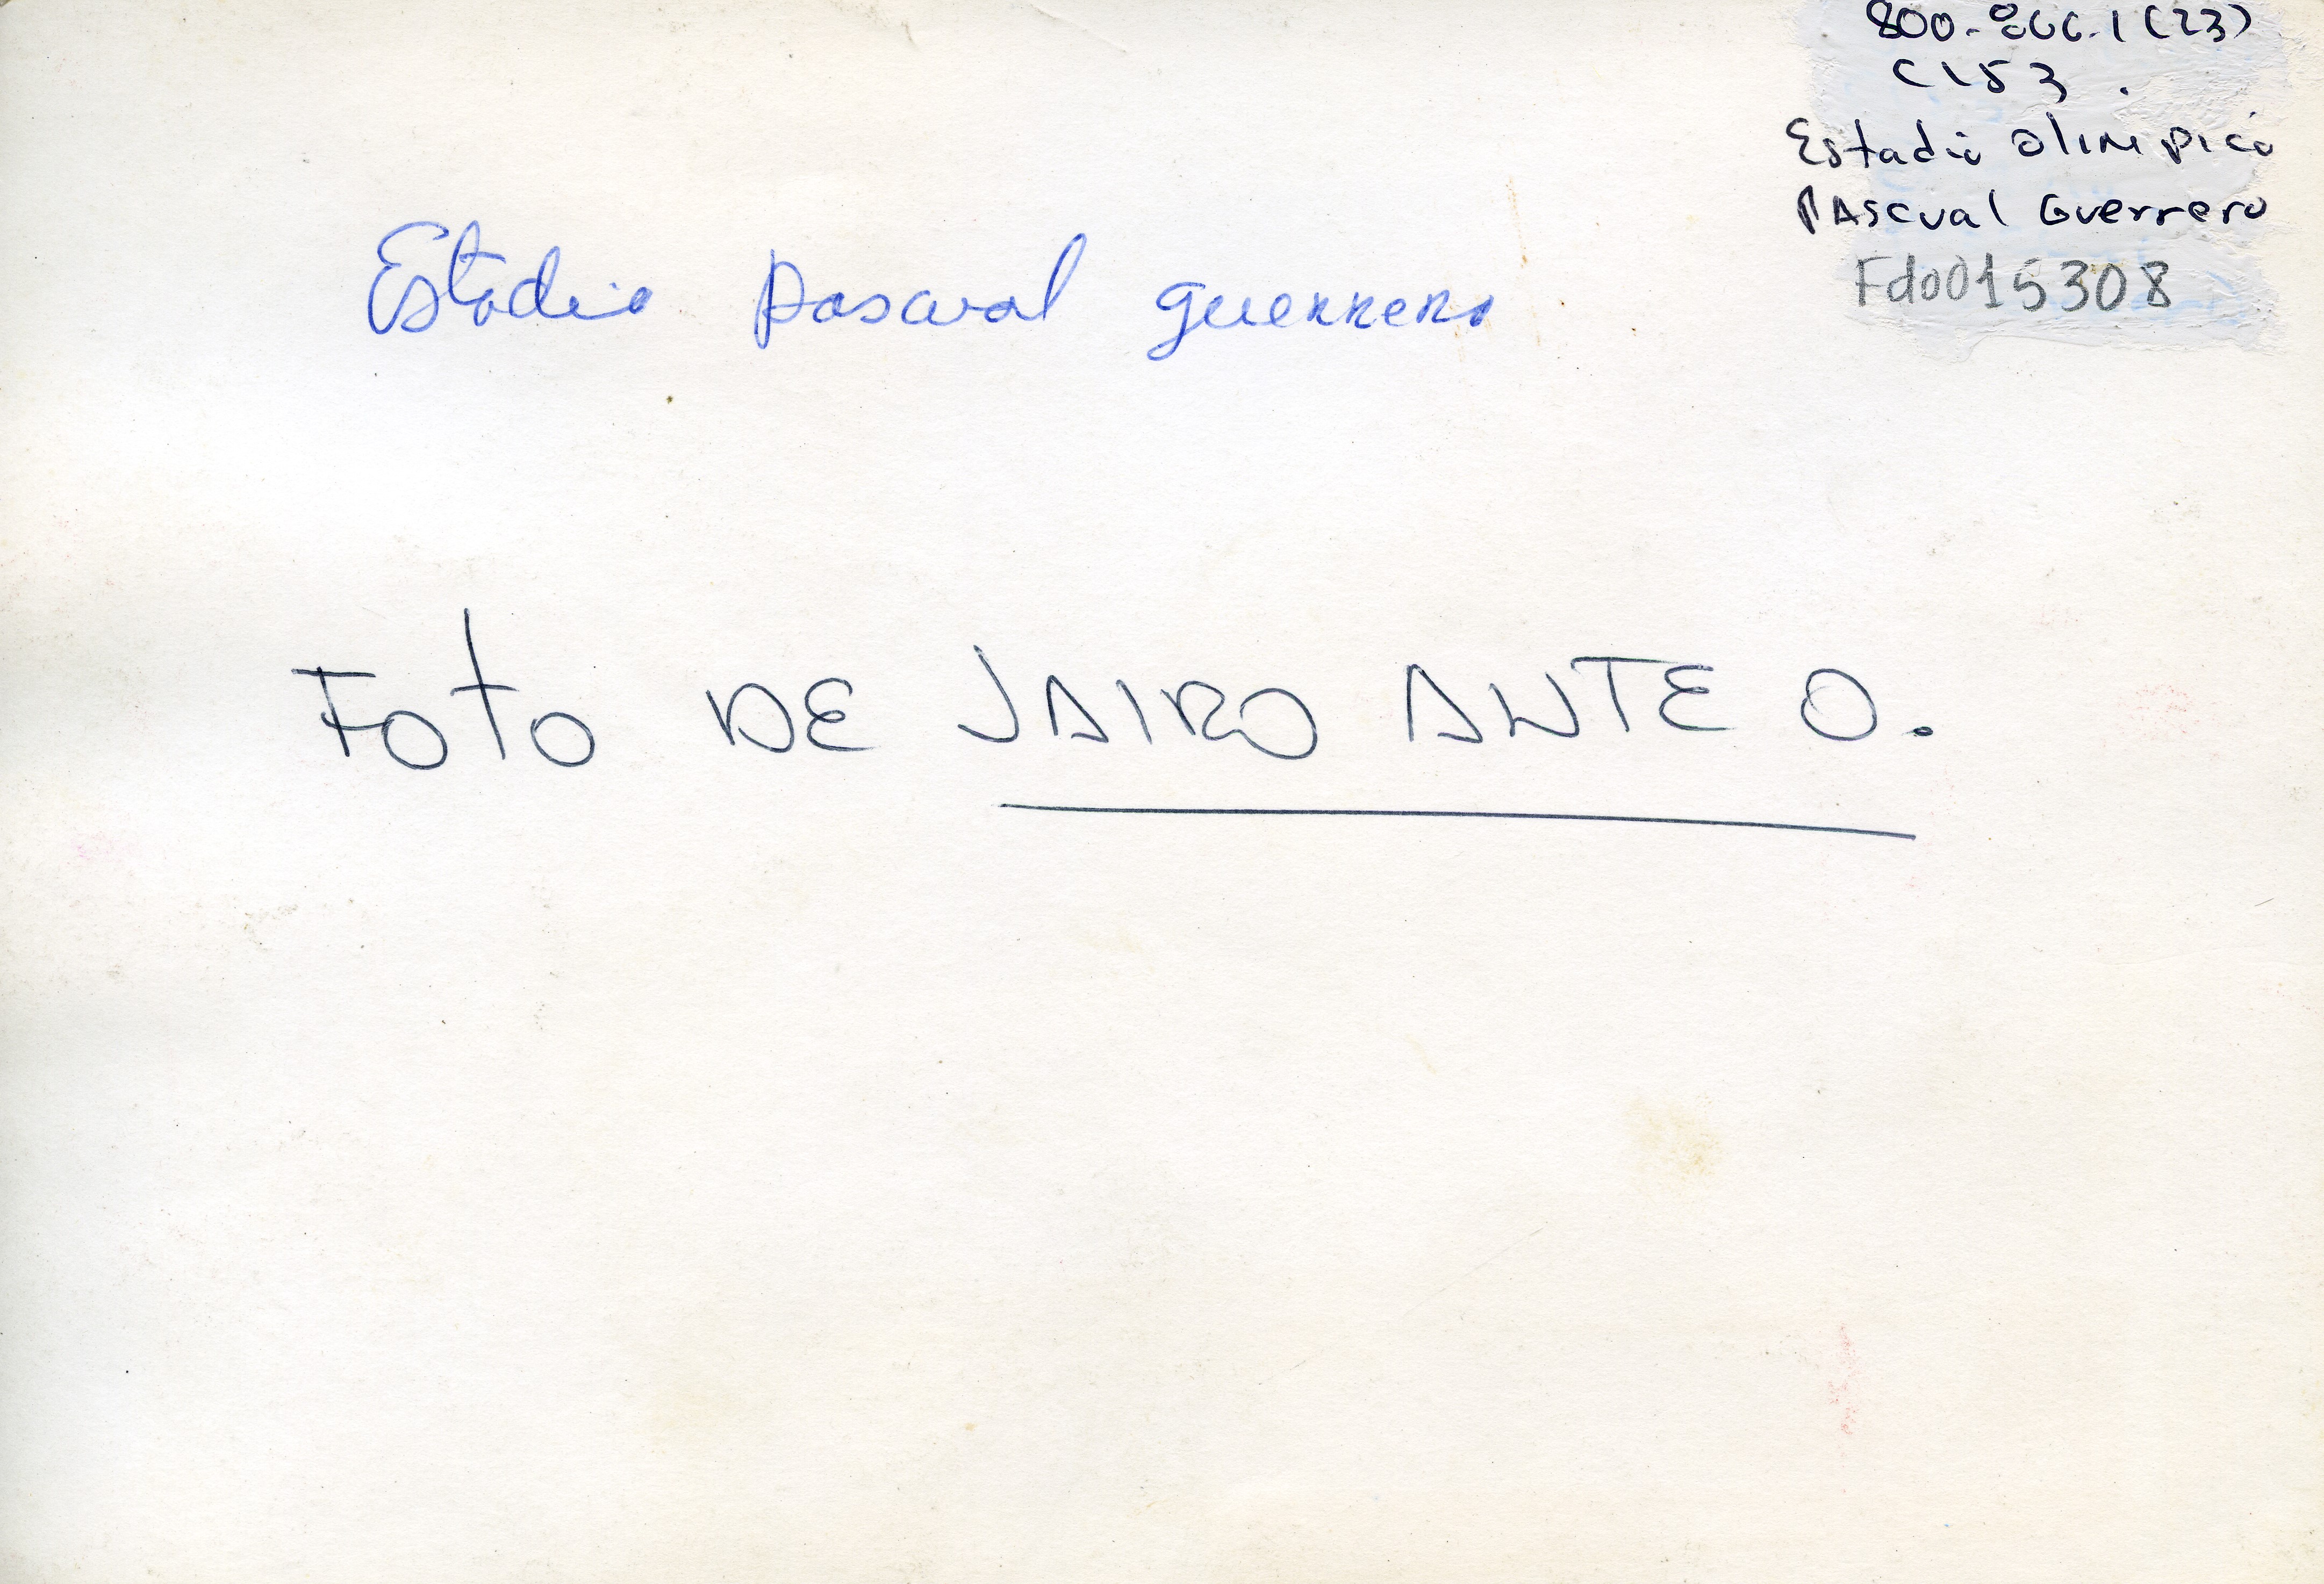 800-866.1(23)
C153.
Estadio Olimpico
Pascual Guerrero
Fdo015308
Estadio pascual guerrero
Foto DE JAIRO ANTE O.